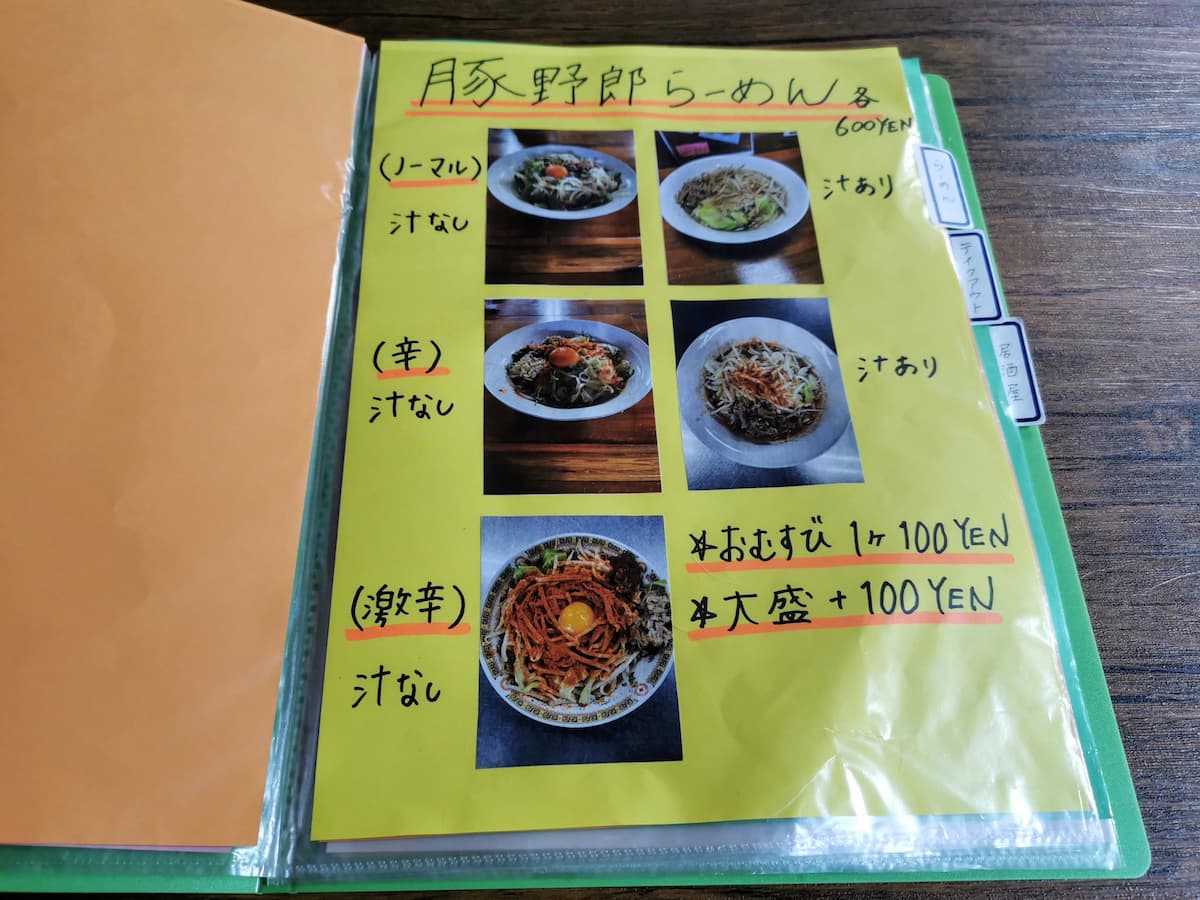 豚野郎らーめん 各
600YEN
(ノーマル)
汁なし
汁あり
(辛)
汁なし
汁あり
(激辛)
汁なし
*おむすび 1ヶ 100YEN
*大盛 + 100YEN
らーめん
テイクアウト
居酒屋